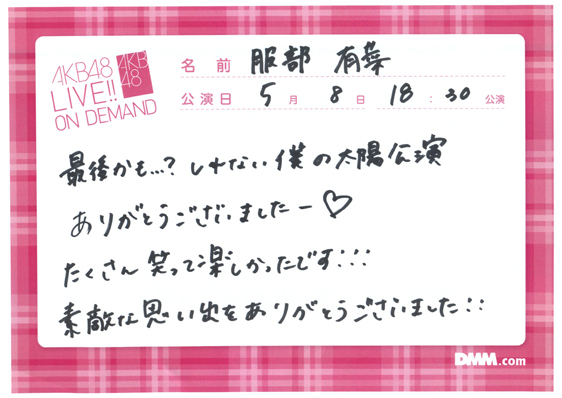 AKB48
LIVE!!
ON DEMAND
AKB
48
名前 服部 有菜
公演日 5月 8日 18:30 公演
最後かも...? しれない僕の太陽公演
ありがとうございましたー♡
たくさん笑って楽しかったです!!!
素敵な思い出をありがとうございました!!
DMM.com